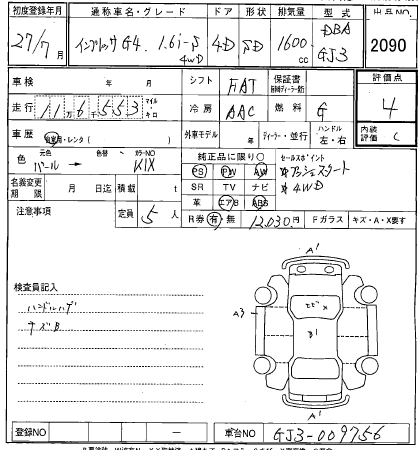 初度登録年月 通称車名・グレード ドア 形状 排気量 型式 出品NO
27/7月 インプレッサ G4 1.6i-S 4WD 4D SD 1600cc DBA GJ3 2090
車検 年 月 シフト FAT 保証書 評価点
走行 11万6千553 マイル キロ 冷房 AAC 燃料 G 4
車歴 自家用・レンタ 外車モデル 年 ディーラー・並行 ハンドル 左・右 内装評価 C
色 元色 パール → 色替 カラーNO K1X 純正品に限り○ セールスポイント
PS PW AW プッシュスタート
名義変更期限 月 日迄 積載 t SR TV ナビ 4WD
注意事項 定員 5人 革 エアB ABS
R券 有・無 12,030円 Fガラス キズ・A・X要す
検査員記入
ハンドルハゲ
キズB
A'
A3
B1
A'
登録NO — 車台NO GJ3-009756